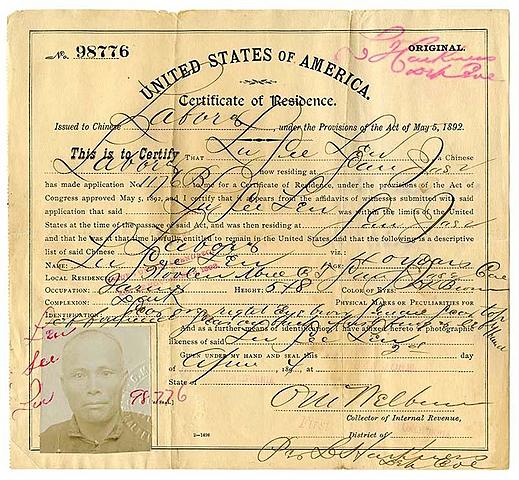 No. 98776
ORIGINAL.
UNITED STATES OF AMERICA.
Certificate of Residence.
Issued to Chinese Laborer, under the Provisions of the Act of May 5, 1892.
This is to Certify THAT Lu Gee Len a Chinese
Laborer now residing at San Jose
has made application No. 1176 to me for a Certificate of Residence, under the provisions of the Act of
Congress approved May 5, 1892, and I certify that it appears from the affidavits of witnesses submitted with said
application that said Lu Gee Len was within the limits of the United
States at the time of the passage of said Act, and was then residing at San Jose
and that he was at that time lawfully entitled to remain in the United States, and that the following is a descriptive
list of said Chinese Laborer viz.:
NAME: Lu Gee Len AGE: 40 years
LOCAL RESIDENCE: Woolen San Jose
OCCUPATION: HEIGHT: COLOR OF EYES:
COMPLEXION: Dark PHYSICAL MARKS OR PECULIARITIES FOR
IDENTIFICATION: Scar on right
And as a further means of identification, I have affixed hereto a photographic
likeness of said Lu Gee Len
GIVEN UNDER MY HAND AND SEAL this day
of 189, at
State of
O M Welburn
Collector of Internal Revenue,
District of
Per
Lu
98776
2—1496